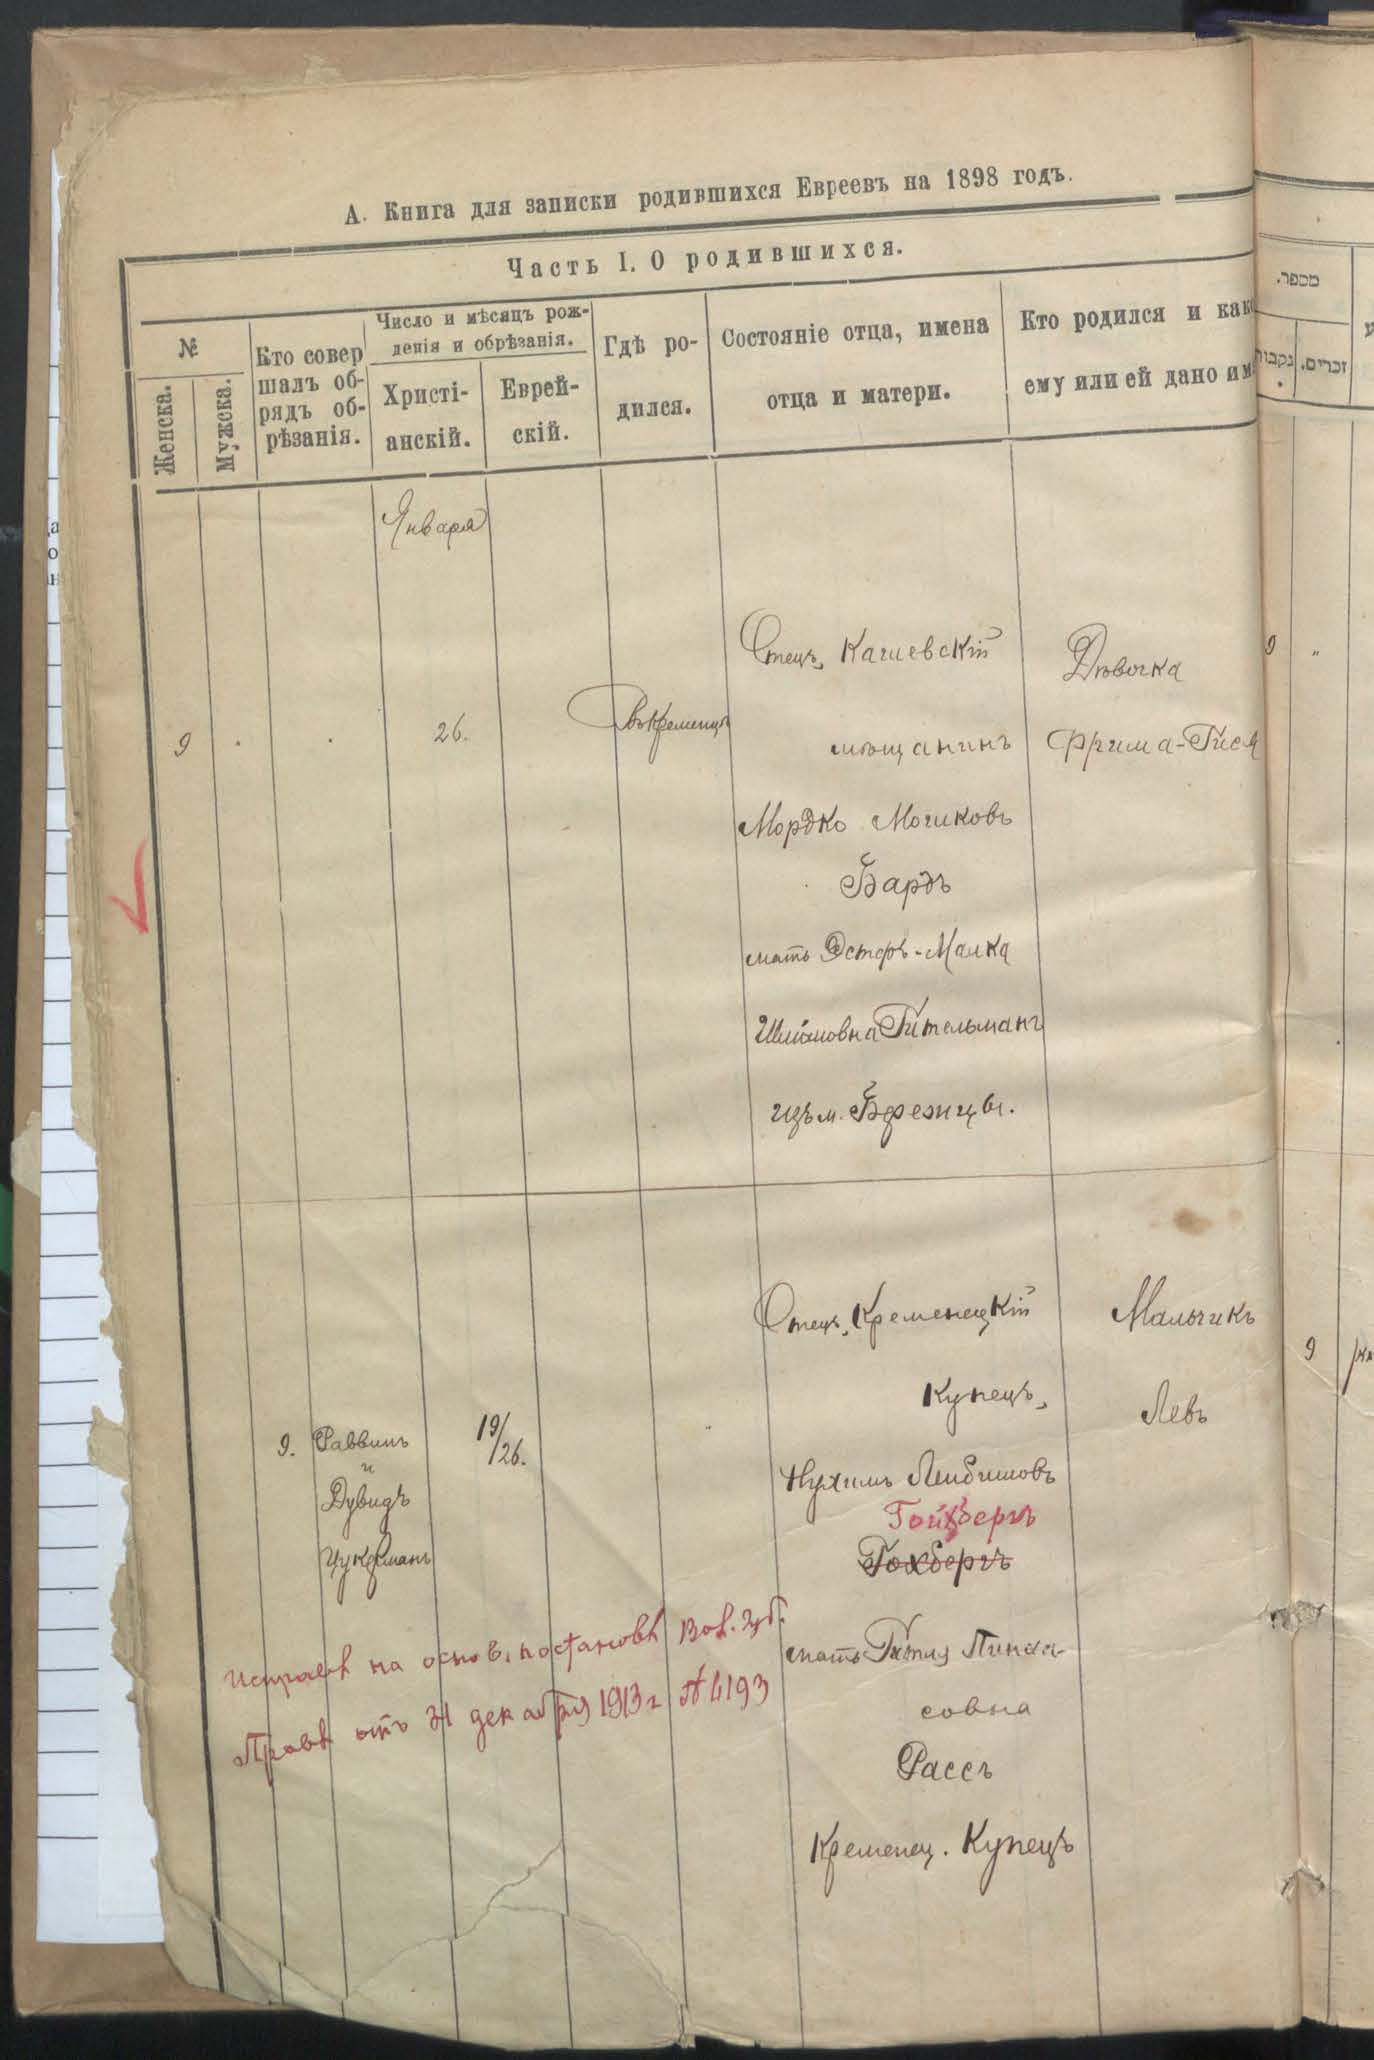 А. Книга для записки родившихся Евреевъ на 1898 годъ.
Часть I. О родившихся.
№
Женска.
Мужска.
Кто совер
шалъ об-
рядъ об-
рѣзанія.
Число и мѣсяцъ рож-
денія и обрѣзанія.
Христі-
анскій.
Еврей-
скій.
Гдѣ ро-
дился.
Состояніе отца, имена
отца и матери.
Кто родился и как
ему или ей дано им
מספר.
נקבות
זכרים.
Января
9
26.
Въ Кременцѣ
Отецъ, Кагиевскій
мѣщанинъ
Мордко Мошковъ
Бардъ
мать Эстеръ-Малка
Шлiомовна Гительманъ
изъ м. Бережцы.
Дѣвочка
Фрима-Гися
9 "
9.
Раввинъ
и
Дувидъ
Цукерманъ
19/26.
Отецъ, Кременецкій
Купецъ,
Нухимъ Лейбишовъ
Гойхбергъ
Гохбергъ
мать Гитля Пинка-
совна
Рассъ
Кременец. Купецъ
Мальчикъ
Левъ
9
Исправ на основ. постанов Вол. Губ.
Прав отъ 31 декабря 1913 г № 4193